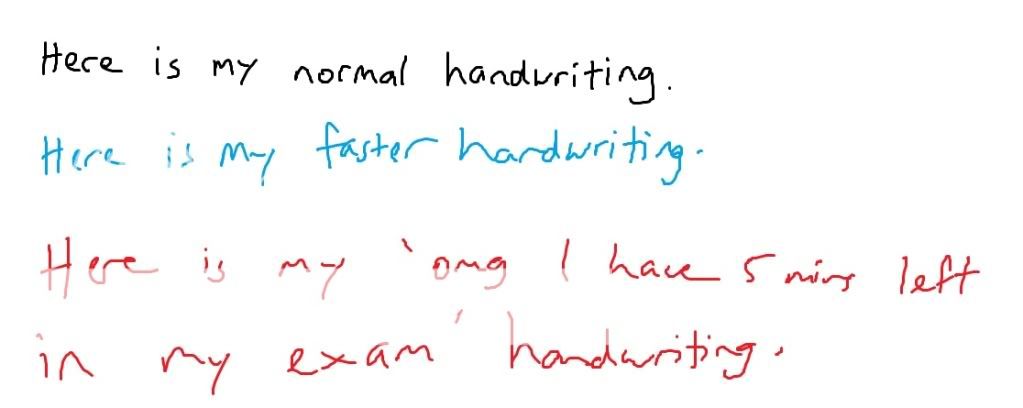 Here is my normal handwriting.
Here is my faster handwriting.
Here is my 'omg I have 5 mins left
in my exam' handwriting.